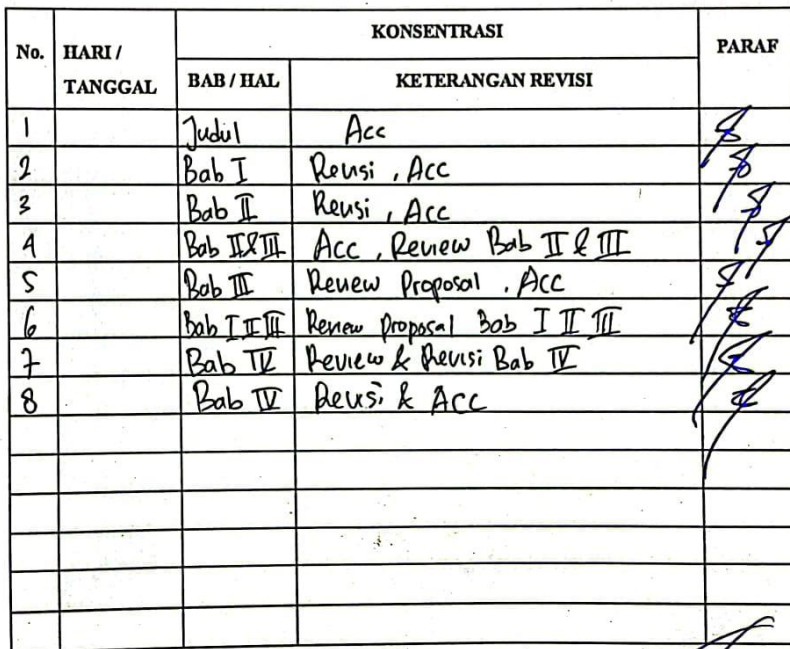 No. HARI / TANGGAL KONSENTRASI PARAF
BAB / HAL KETERANGAN REVISI
1 Judul Acc
2 Bab I Revisi, Acc
3 Bab II Revisi, Acc
4 Bab II & III Acc, Review Bab II & III
5 Bab III Review Proposal, Acc
6 Bab I II III Review Proposal Bab I II III
7 Bab IV Review & Revisi Bab IV
8 Bab IV Revisi & ACC